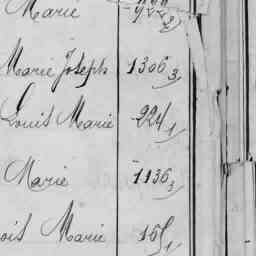 Marie
Marie Joseph 1306/3
Louis Marie 224/1
Marie 1136/3
Marie 165/1